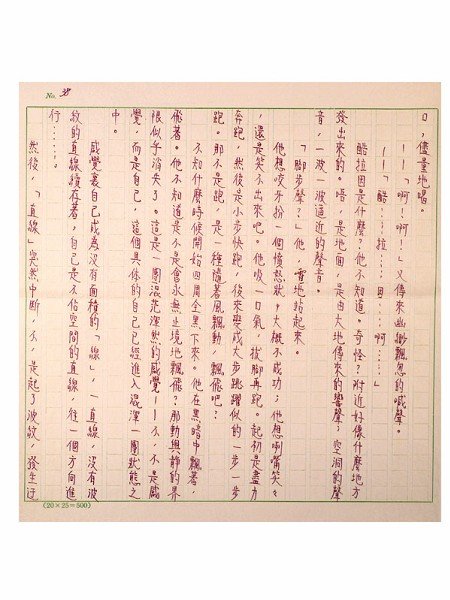 No. 38
口，儘量地唱。
——「啊！啊！」又傳來幽渺飄忽的喊聲。
——「酷……拉……因……啊……」
酷拉因是什麼？他不知道。奇怪？附近好像什麼地方
發出來的。唔，是地面，是由大地傳來的響聲；空洞的聲
音，一波一波逼近的聲音。
「腳步聲？」他，霍地站起來。
他想咬牙扮一個憤怒狀，大概不成功；他想咧嘴笑笑
，還是笑不出來吧。他吸一口氣，拔腳再跑。起初是盡力
奔跑，然後是小步快跑，後來變成大步跳躍似的一步一步
跑。那不是跑，是一種隨著風飄動，飄飛吧？
不知什麼時候開始四周全黑下來。他在黑暗中飄著，
飛著。他不知道是不是會永無止境地飄飛？那動與靜的界
限似乎消失了。這是一團混茫渾然的感覺——不，不是感
覺，而是自己，這個具體的自己已經進入混渾一團狀態之
中。
感覺裏自己成為沒有面積的「線」，一直線，沒有波
紋的直線續存著，自己是不佔空間的直線，往一個方向進
行……。
然後，「直線」突然中斷，不，是起了波紋，發生迂
(20×25=500)